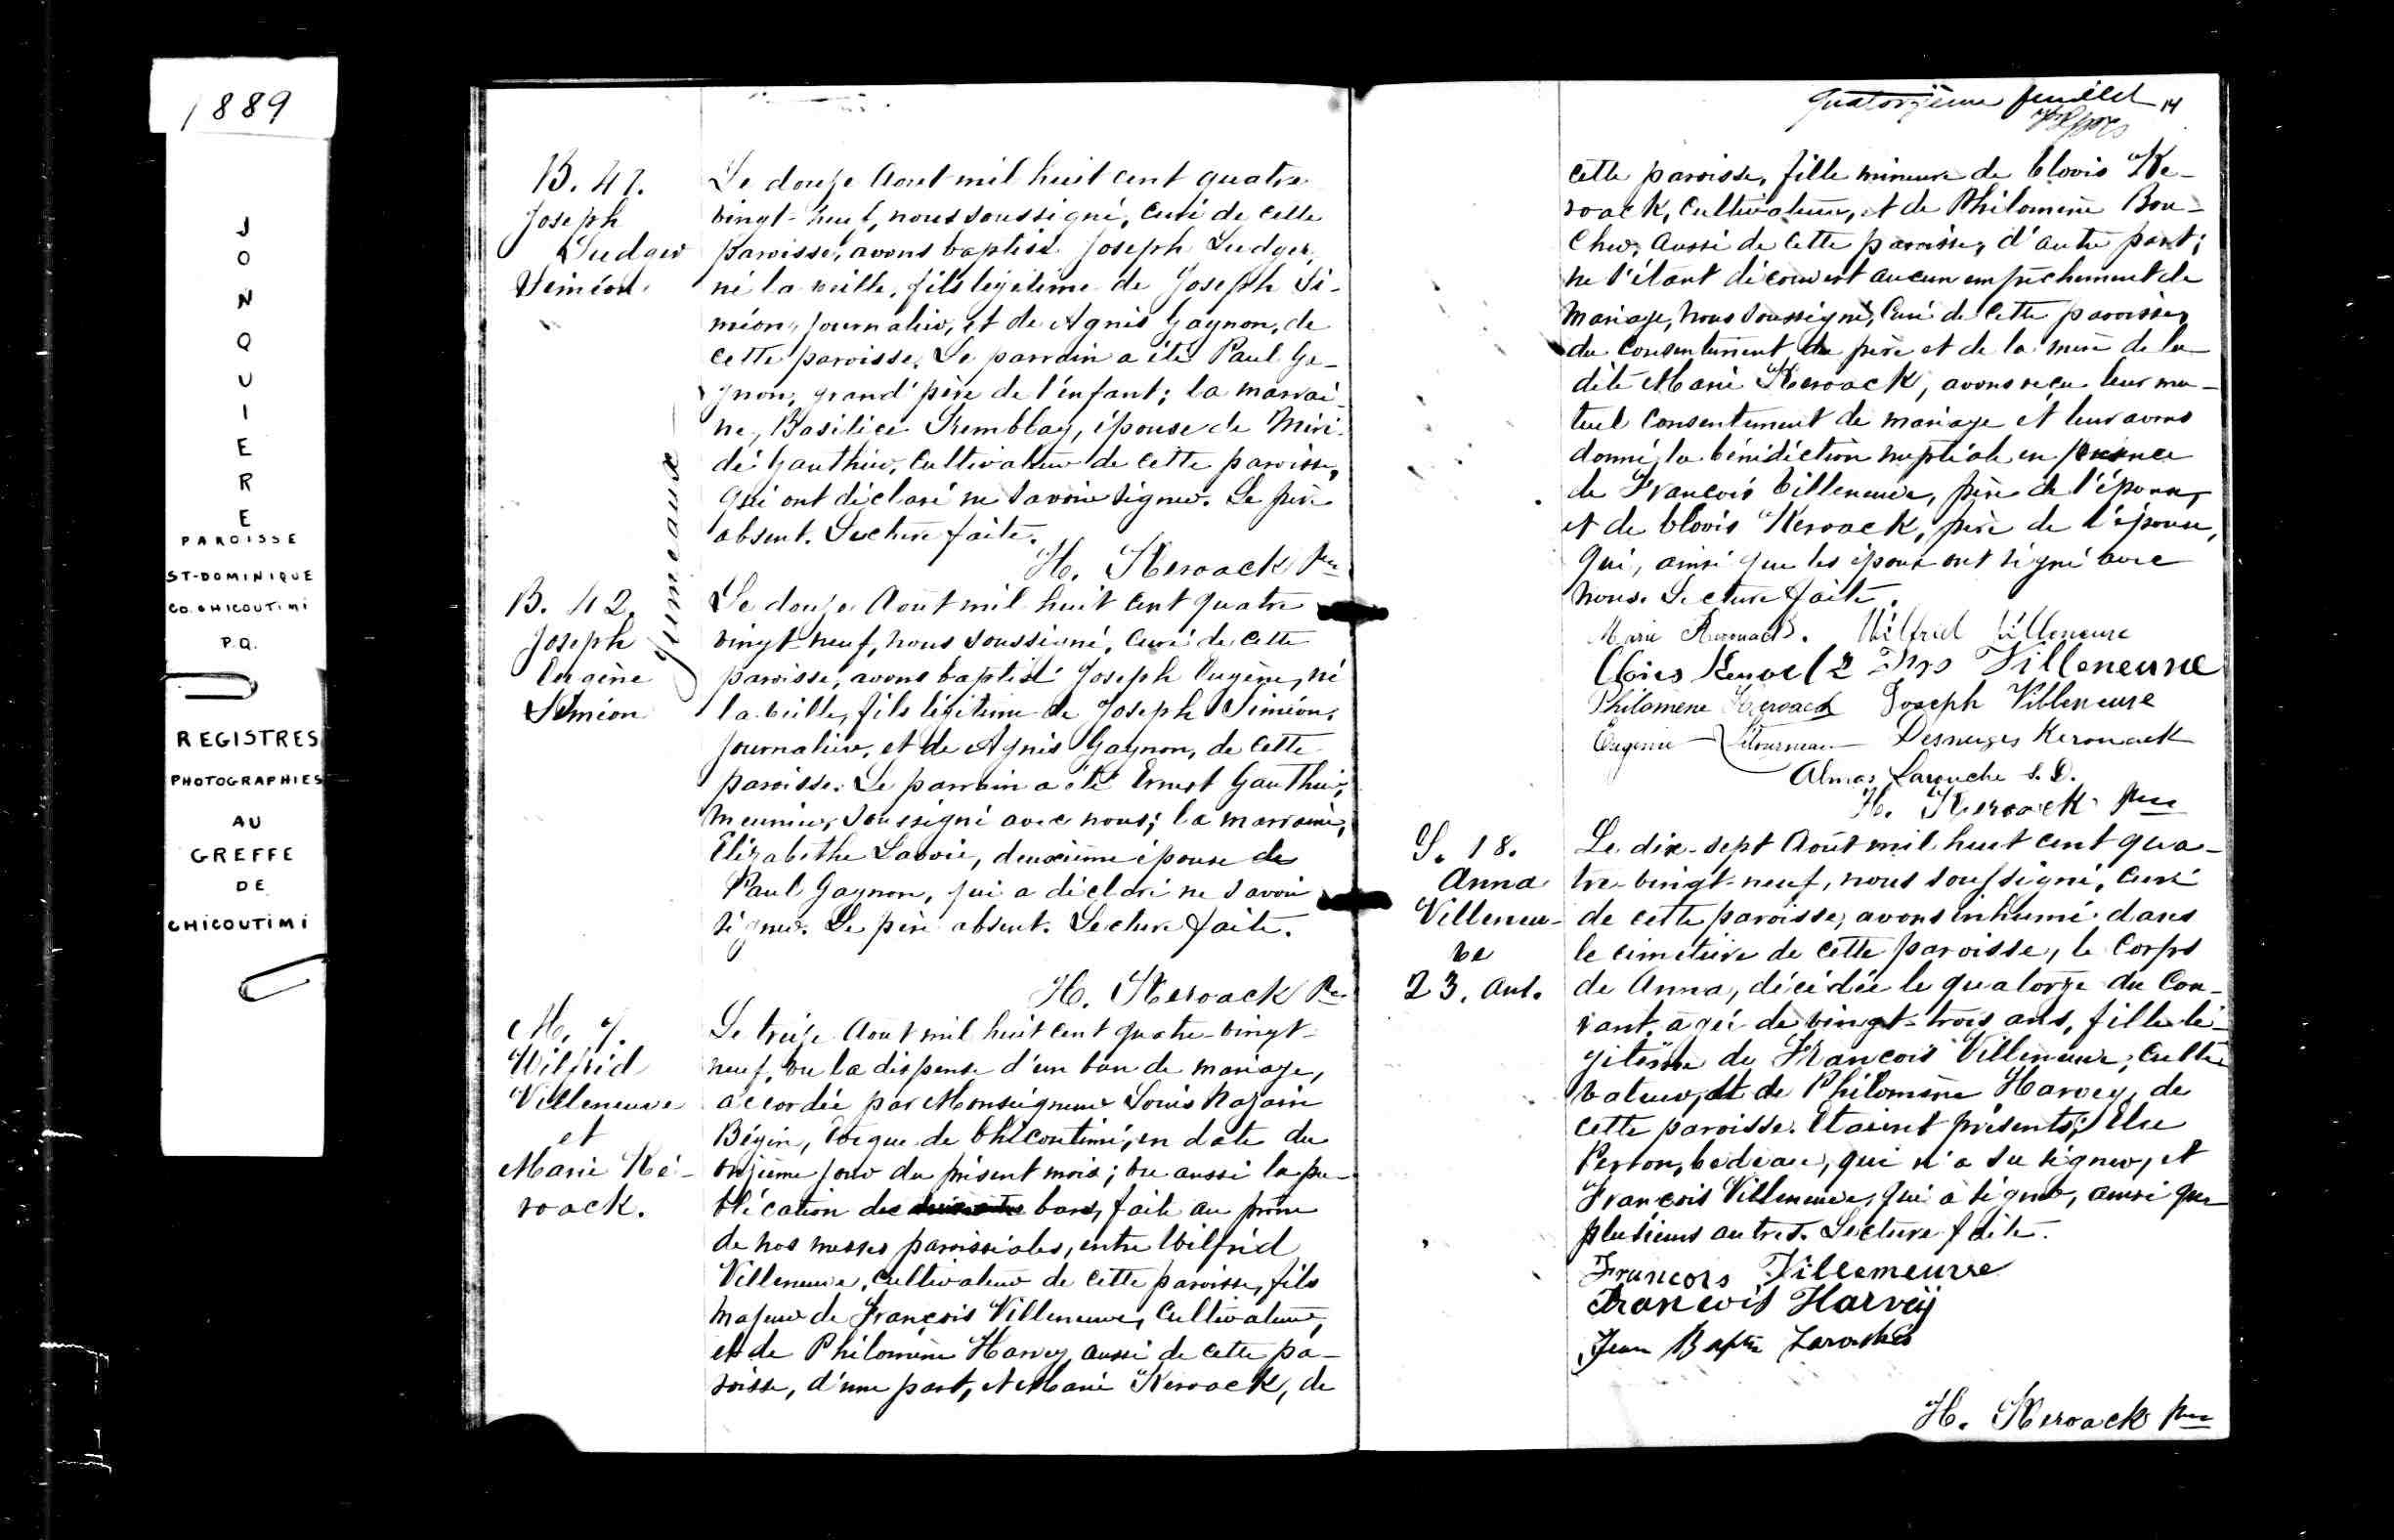 1889
JONQUIERE
PAROISSE
ST-DOMINIQUE
CO. CHICOUTIMI
P.Q.
REGISTRES
PHOTOGRAPHIES
AU
GREFFE
DE
CHICOUTIMI
B. 41.
Joseph
Ludger
Siméon.
Le douze Aout mil huit cent quatre
vingt-neuf, nous soussigné, Curé de cette
paroisse, avons baptisé Joseph Ludger,
né la veille, fils légitime de Joseph Si-
méon, journalier, et de Agnès Gagnon, de
cette paroisse. Le parrain a été Paul Ga-
gnon, grand'père de l'enfant; la marrai-
ne, Basilice Tremblay, épouse de Méri-
dé Gauthier, Cultivateur de cette paroisse,
qui ont déclaré ne savoir signer. Le père
absent. Lecture faite.
H. Keroack Ptre
Jumeaux
B. 42.
Joseph
Eugène
Siméon
Le douze Août mil huit cent quatre
vingt-neuf, nous soussigné, Curé de cette
paroisse, avons baptisé Joseph Eugène, né
la veille, fils légitime de Joseph Siméon,
journalier, et de Agnès Gagnon, de cette
paroisse. Le parrain a été Ernest Gauthier,
meunier, soussigné avec nous; la marraine,
Elizabethe Savoie, deuxième épouse de
Paul Gagnon, qui a déclaré ne savoir
signer. Le père absent. Lecture faite.
H. Keroack Ptre
M. 7.
Wilfrid
Villeneuve
et
Marie Ké-
roack.
Le treize Août mil huit cent quatre-vingt-
neuf, vu la dispense d'un ban de mariage,
accordée par Monseigneur Louis Nazaire
Bégin, Evêque de Chicoutimi, en date du
onzième jour du présent mois; vu aussi la pu-
blication de bans, faite au prône
de nos messes paroissiales, entre Wilfrid
Villeneuve, cultivateur de cette paroisse, fils
majeur de François Villeneuve, Cultivateur,
et de Philomène Harvey, aussi de cette pa-
roisse, d'une part, et Marie Keroack, de
quatorzième feuillet 14
cette paroisse, fille mineure de Clovis Ke-
roack, Cultivateur, et de Philomène Bou-
cher, aussi de cette paroisse, d'autre part;
ne s'étant découvert aucun empêchement de
mariage, nous soussigné, Curé de cette paroisse,
du consentement du père et de la mère de la
dite Marie Keroack, avons reçu leur mu-
tuel consentement de mariage et leur avons
donné la bénédiction nuptiale en présence
de François Villeneuve, père de l'époux,
et de Clovis Keroack, père de l'épouse,
qui, ainsi que les époux ont signé avec
nous. Lecture faite.
Marie Kerouack. Wilfrid Villeneuve
Villeneuve
Philomene Keroack Joseph Villeneuve
Eugenie Létourneau Desneiges Kerouack
Almas Larouche S. D.
H. Keroack Ptre
S. 18.
Anna
Villeneu-
ve
23. ans.
Le dix-sept Août mil huit cent qua-
tre-vingt-neuf, nous soussigné, Curé
de cette paroisse, avons inhumé dans
le cimetière de cette paroisse, le Corps
de Anna, décédée le quatorze du Cou-
rant, agée de vingt-trois ans, fille lé-
gitime de François Villeneuve, Culti-
vateur, et de Philomène Harvey, de
cette paroisse. Etaient présents; Elie
Perron, bedeau, qui n'a su signer, et
François Villeneuve, qui a signé, ainsi que
plusieurs autres. Lecture faite.
Francois Villemeurve
Francois Harvey
Jean Bapte Larouche
H. Keroack Ptre